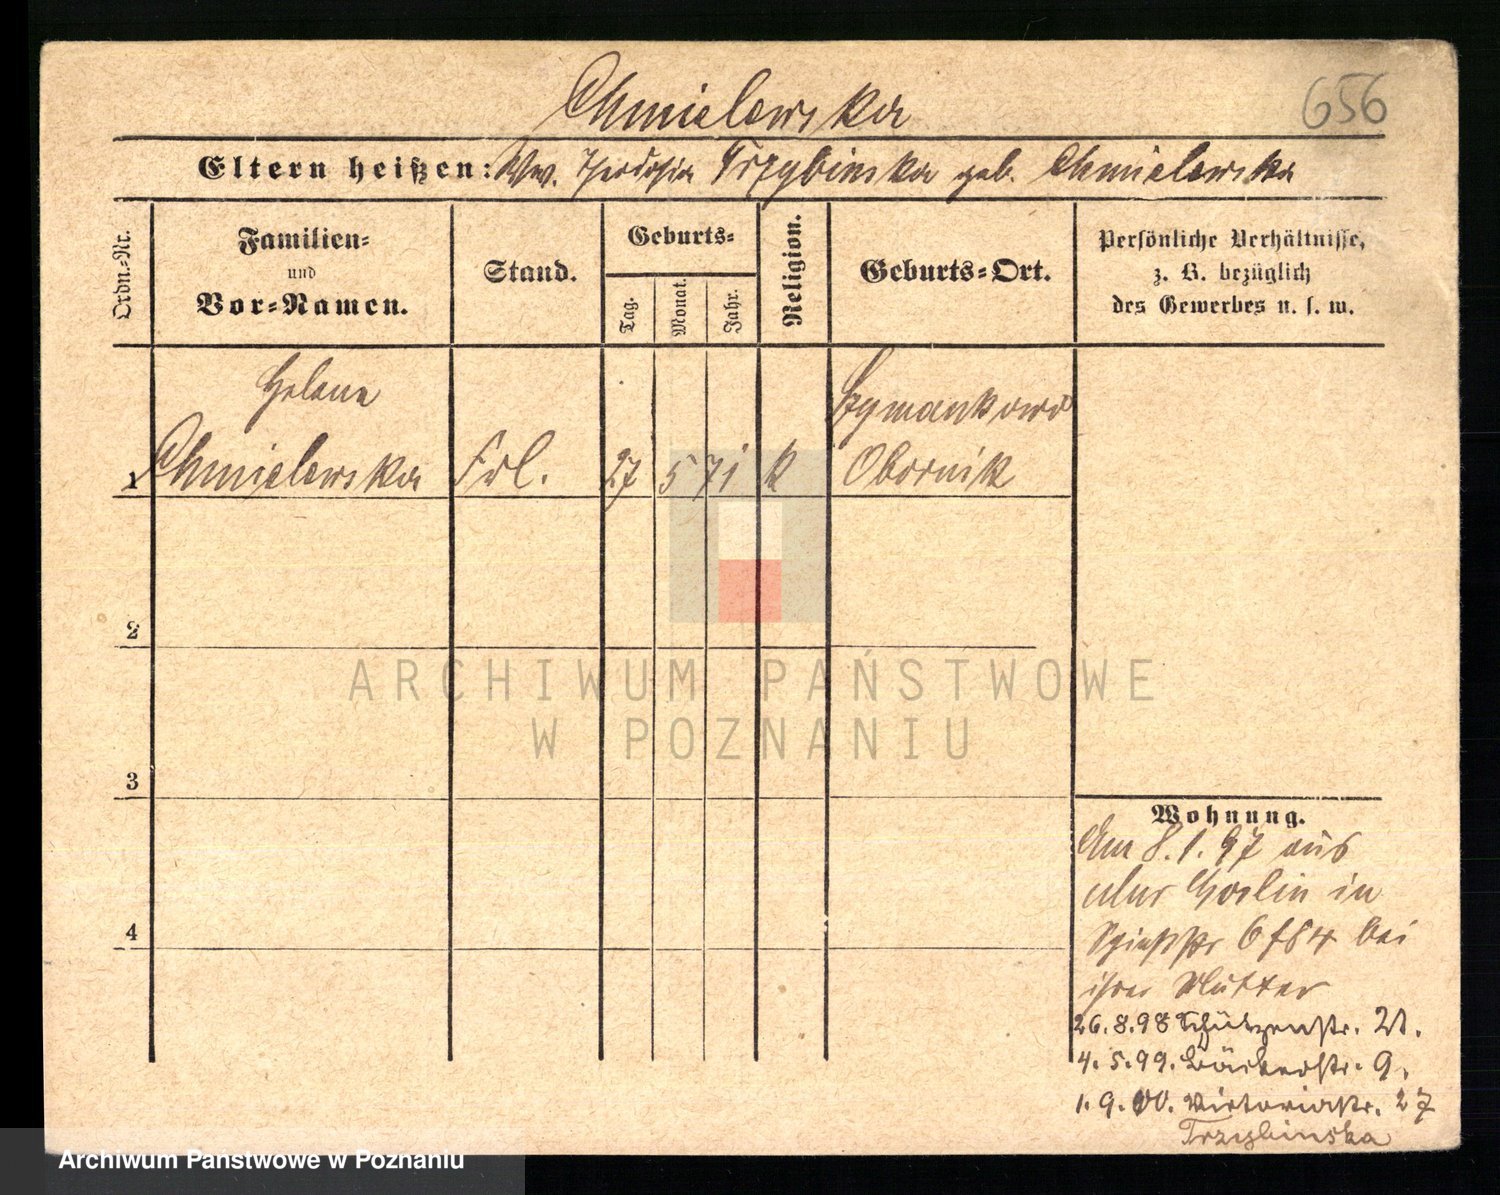 Chmielewska
656
Eltern heißen: Ww. Theodosia Trzybinska geb. Chmielewska
Ordn.-Nr.
Familien-
und
Vor-Namen.
Stand.
Geburts-
Tag.
Monat.
Jahr.
Religion.
Geburts-Ort.
Persönliche Verhältnisse,
z. B. bezüglich
des Gewerbes u. s. w.
Helene
Chmielewska
1
Frl.
27
5
71
k
Szymankowo
Obornik
2
3
4
Wohnung.
Am 8.1.97 aus
Mur Goslin in
bei
ihrer Mutter
26.8.98 Schützenstr. 21.
4.5.99. Bäckerstr. 9.
1.9.00. Victoriastr. 27
Trzybinska
ARCHIWUM PAŃSTWOWE
W POZNANIU
Archiwum Państwowe w Poznaniu